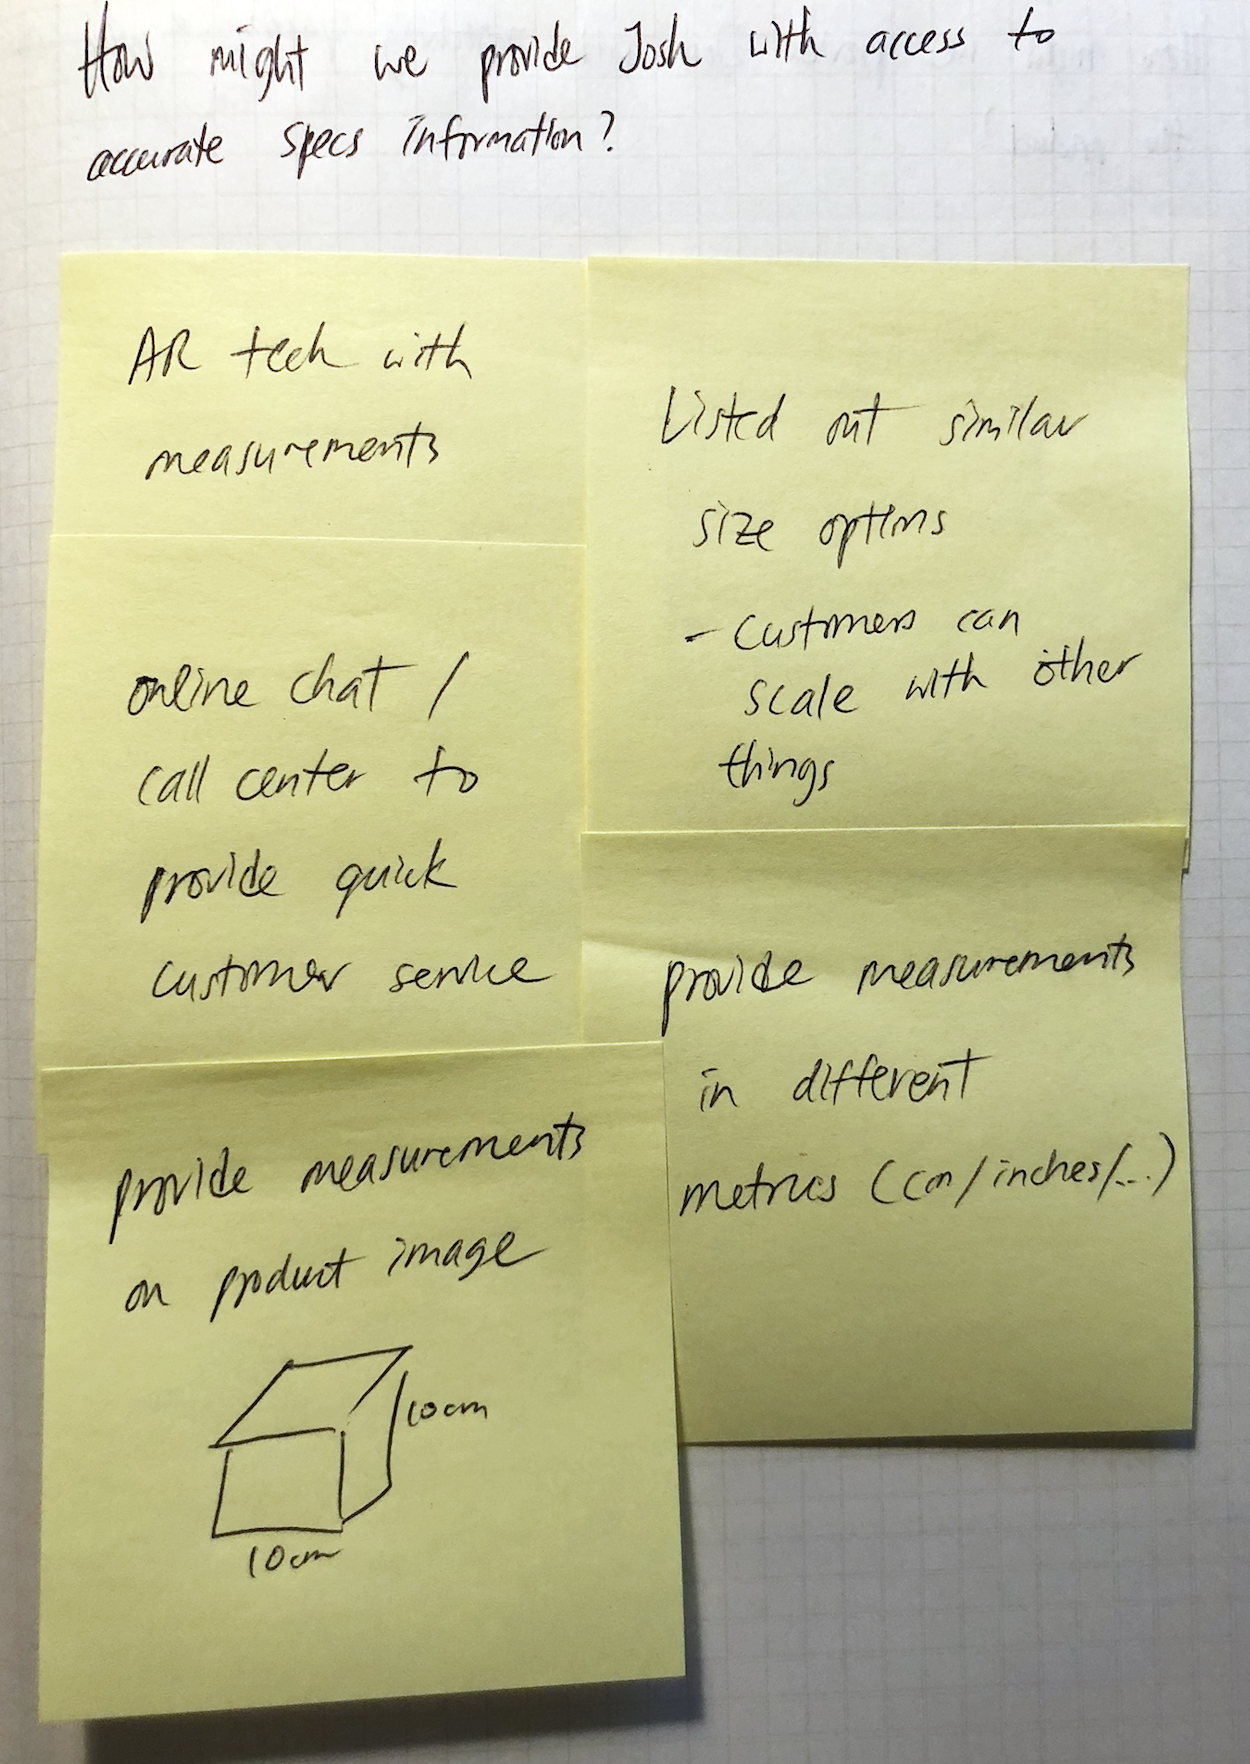 How might we provide Josh with access to
accurate specs information?
AR tech with
measurements
online chat /
call center to
provide quick
customer service
provide measurements
on product image
10cm
10cm
Listed out similar
size options
- Customers can
scale with other
things
provide measurements
in different
metrics (cm/inches/...)